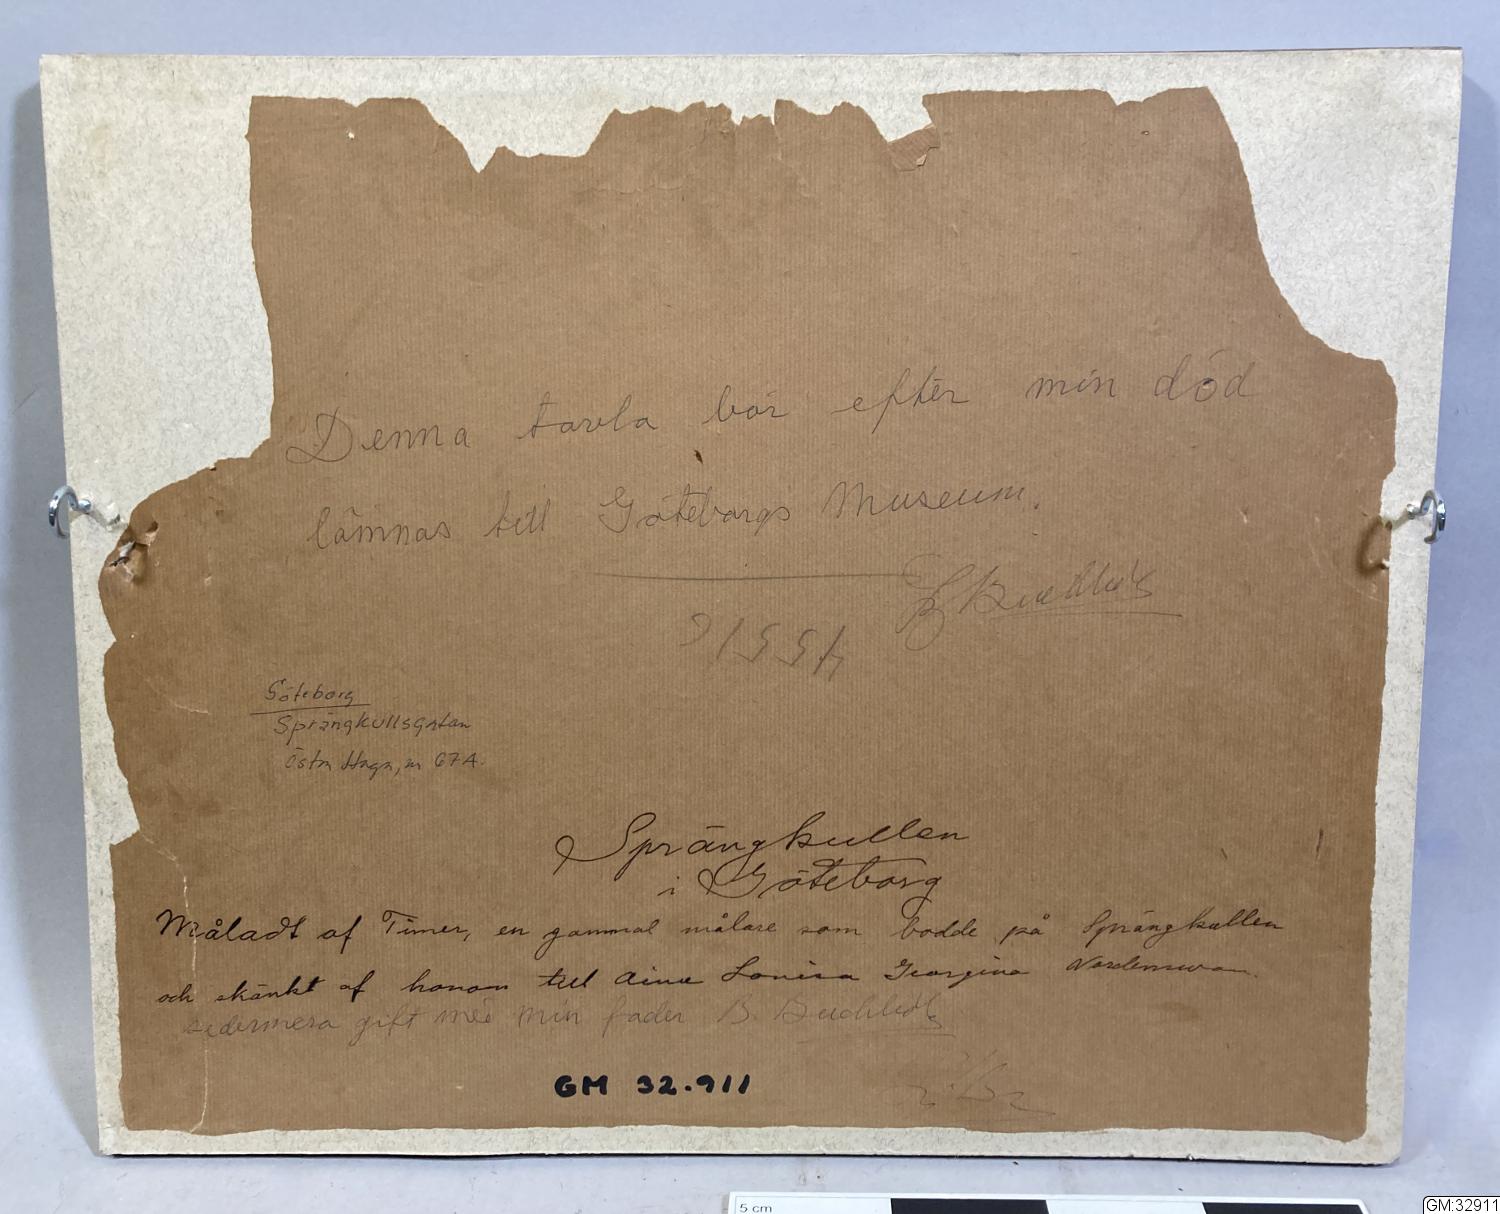 Denna tavla bör efter min död
lämnas till Göteborgs Museum.
Göteborg
Sprängkullsgatan
Östra Haga, nr 67A.
Sprängkullen
i Göteborg
Måladt af Timer, en gammal målare som bodde på Sprängkullen
och skänkt af honom till Aina Lovisa Georgina
sedermera gift med min fader B.
GM 32.911
5 cm
GM:32911